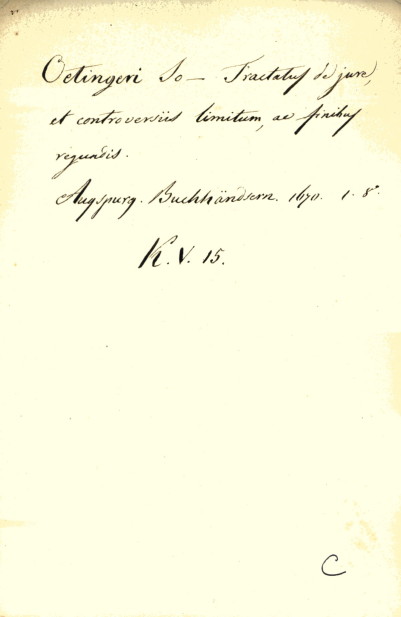 Oetingeri Jo— Tractatus de jure,
et controversiis limitum, ac finibus
regundis.
Augspurg. Buchhändsern. 1670. 1. 8°
K. V. 15.
C